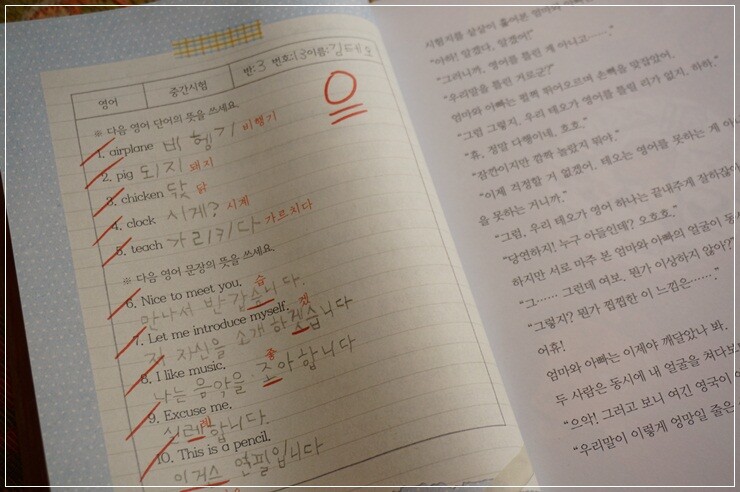 영어 중간시험 반:3 번호:13 이름:김태오
0
※ 다음 영어 단어의 뜻을 쓰세요.
1. airplane 비헹기 비행기
2. pig 되지 돼지
3. chicken 닭
4. clock 시게? 시계
5. teach 가리키다 가르치다
※ 다음 영어 문장의 뜻을 쓰세요.
6. Nice to meet you. 습
만나서 반갑슴니다.
7. Let me introduce myself. 겠
저 자신을 소개 하겟습니다
8. I like music. 좋
나는 음악을 조아합니다
9. Excuse me. 례
실레합니다.
10. This is a pencil.
이거스 연필입니다
시험지를 샅샅이 훑어본 엄마와 아빠는
“아하! 알겠다, 알겠어!”
“그러니까, 영어를 틀린 게 아니고…….”
“우리말을 틀린 거로군?”
엄마와 아빠는 펄쩍 뛰어오르며 손뼉을 맞잡았어.
“그럼 그렇지. 우리 태오가 영어를 틀릴 리가 없지. 하하.”
“휴, 정말 다행이네, 호호.”
“잠깐이지만 깜짝 놀랐지 뭐야.”
“이제 걱정할 거 없겠어. 태오는 영어를 못하는 게 아니
을 못하는 거니까.”
“그럼, 우리 태오가 영어 하나는 끝내주게 잘하잖아
“당연하지! 누구 아들인데? 오호호.”
하지만 서로 마주 본 엄마와 아빠의 얼굴이 동시
“그…… 그런데 여보, 뭔가 이상하지 않아?”
“그렇지? 뭔가 찝찝한 이 느낌은…….”
어휴!
엄마와 아빠는 이제야 깨달았나 봐.
두 사람은 동시에 내 얼굴을 쳐다보
“으악! 그러고 보니 여긴 영국이 아
“우리말이 이렇게 엉망일 줄은